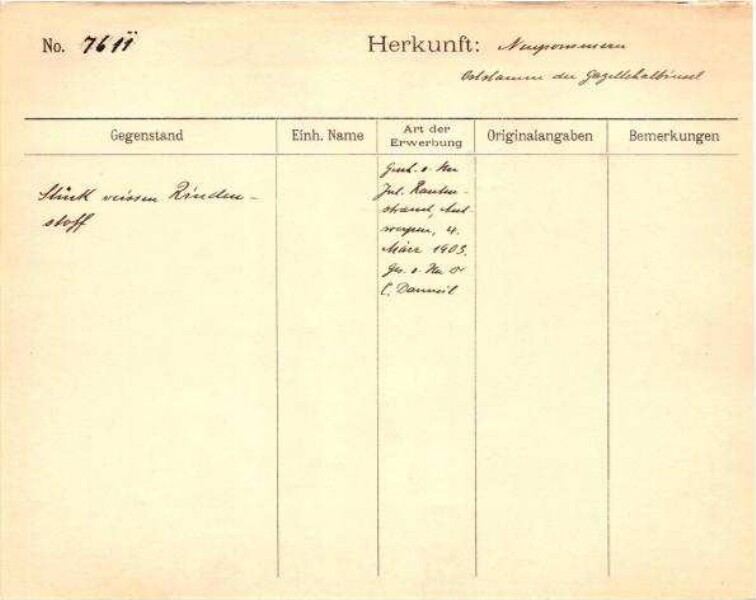 No. 7611
Herkunft: Neupommern
Oststamm der Gazellehalbinsel
Gegenstand
Einh. Name
Art der
Erwerbung
Originalangaben
Bemerkungen
Stück weissen Rinden-
stoff
Gesch. v. Hn
Jul. Rauten-
strauch, Ant-
werpen, 4.
März 1903.
Ges. v. Hn Dr
C. Danneil